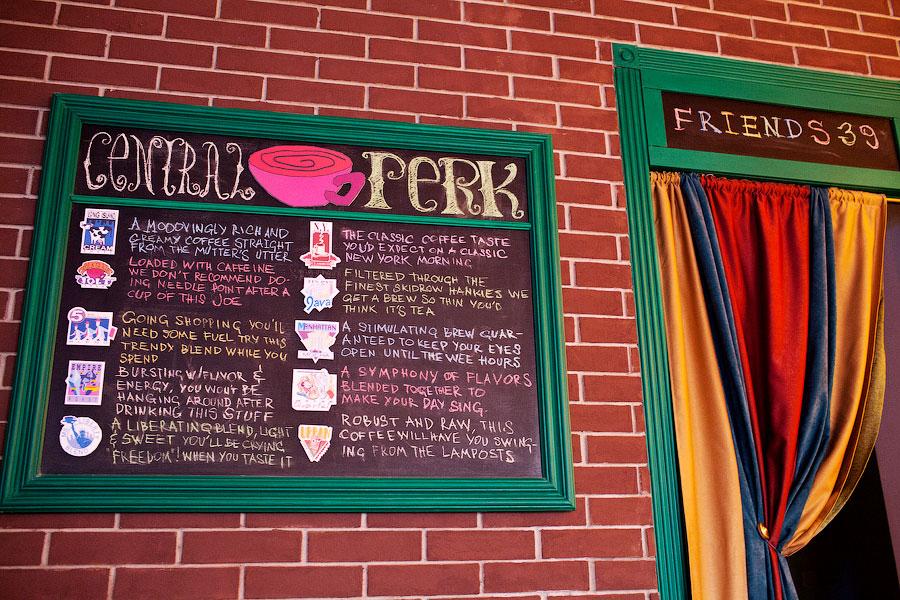 CENTRAL PERK
FRIENDS 39
LONG ISLAND
CREAM
A MOOOVINGLY RICH AND
CREAMY COFFEE STRAIGHT
FROM THE MUTTER'S UTTER
JOE
LOADED WITH CAFFEINE
WE DON'T RECOMMEND DO-
ING NEEDLE POINT AFTER A
CUP OF THIS JOE
5
GOING SHOPPING YOU'LL
NEED SOME FUEL TRY THIS
TRENDY BLEND WHILE YOU
SPEND
EMPIRE
ROAST
BURSTING W/FLAVOR &
ENERGY, YOU WON'T BE
HANGING AROUND AFTER
DRINKING THIS STUFF
BLEND
A LIBERATING BLEND, LIGHT
& SWEET YOU'LL BE CRYING
"FREEDOM"! WHEN YOU TASTE IT
N.Y.
THE CLASSIC COFFEE TASTE
YOU'D EXPECT ON A CLASSIC
NEW YORK MORNING
Java
FILTERED THROUGH THE
FINEST SKIDROW HANKIES WE
GET A BREW SO THIN YOU'D
THINK IT'S TEA
MANHATTAN
A STIMULATING BREW GUAR-
ANTEED TO KEEP YOUR EYES
OPEN UNTIL THE WEE HOURS
A SYMPHONY OF FLAVORS
BLENDED TOGETHER TO
MAKE YOUR DAY SING.
URBAN
ROBUST AND RAW, THIS
COFFEE WILL HAVE YOU SWING-
ING FROM THE LAMPOSTS